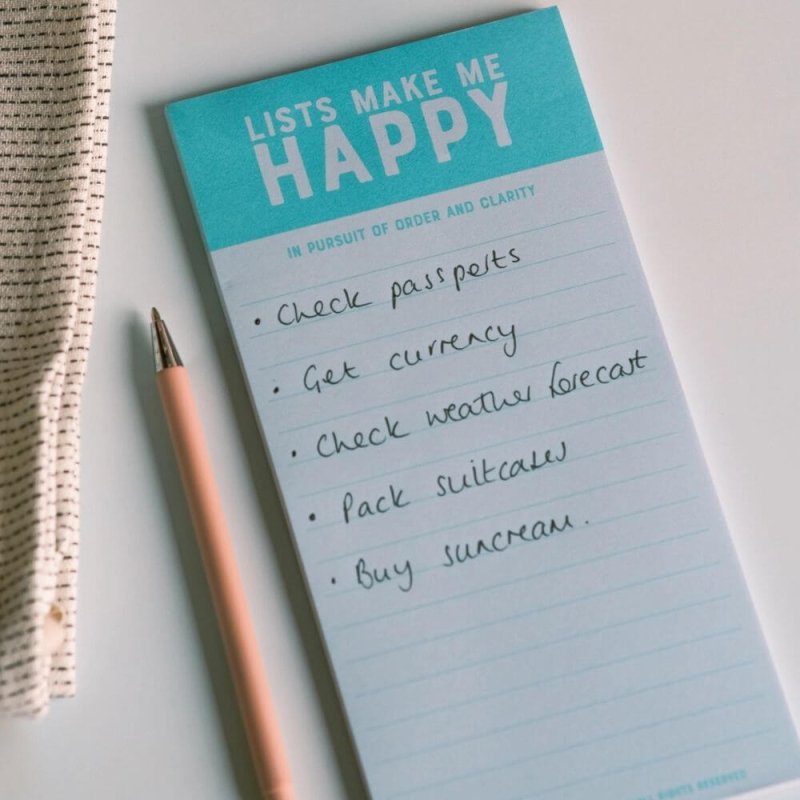 LISTS MAKE ME
HAPPY
IN PURSUIT OF ORDER AND CLARITY
• Check passports
• Get currency
• Check weather forecast
• Pack suitcases
• Buy suncream.
ALL RIGHTS RESERVED